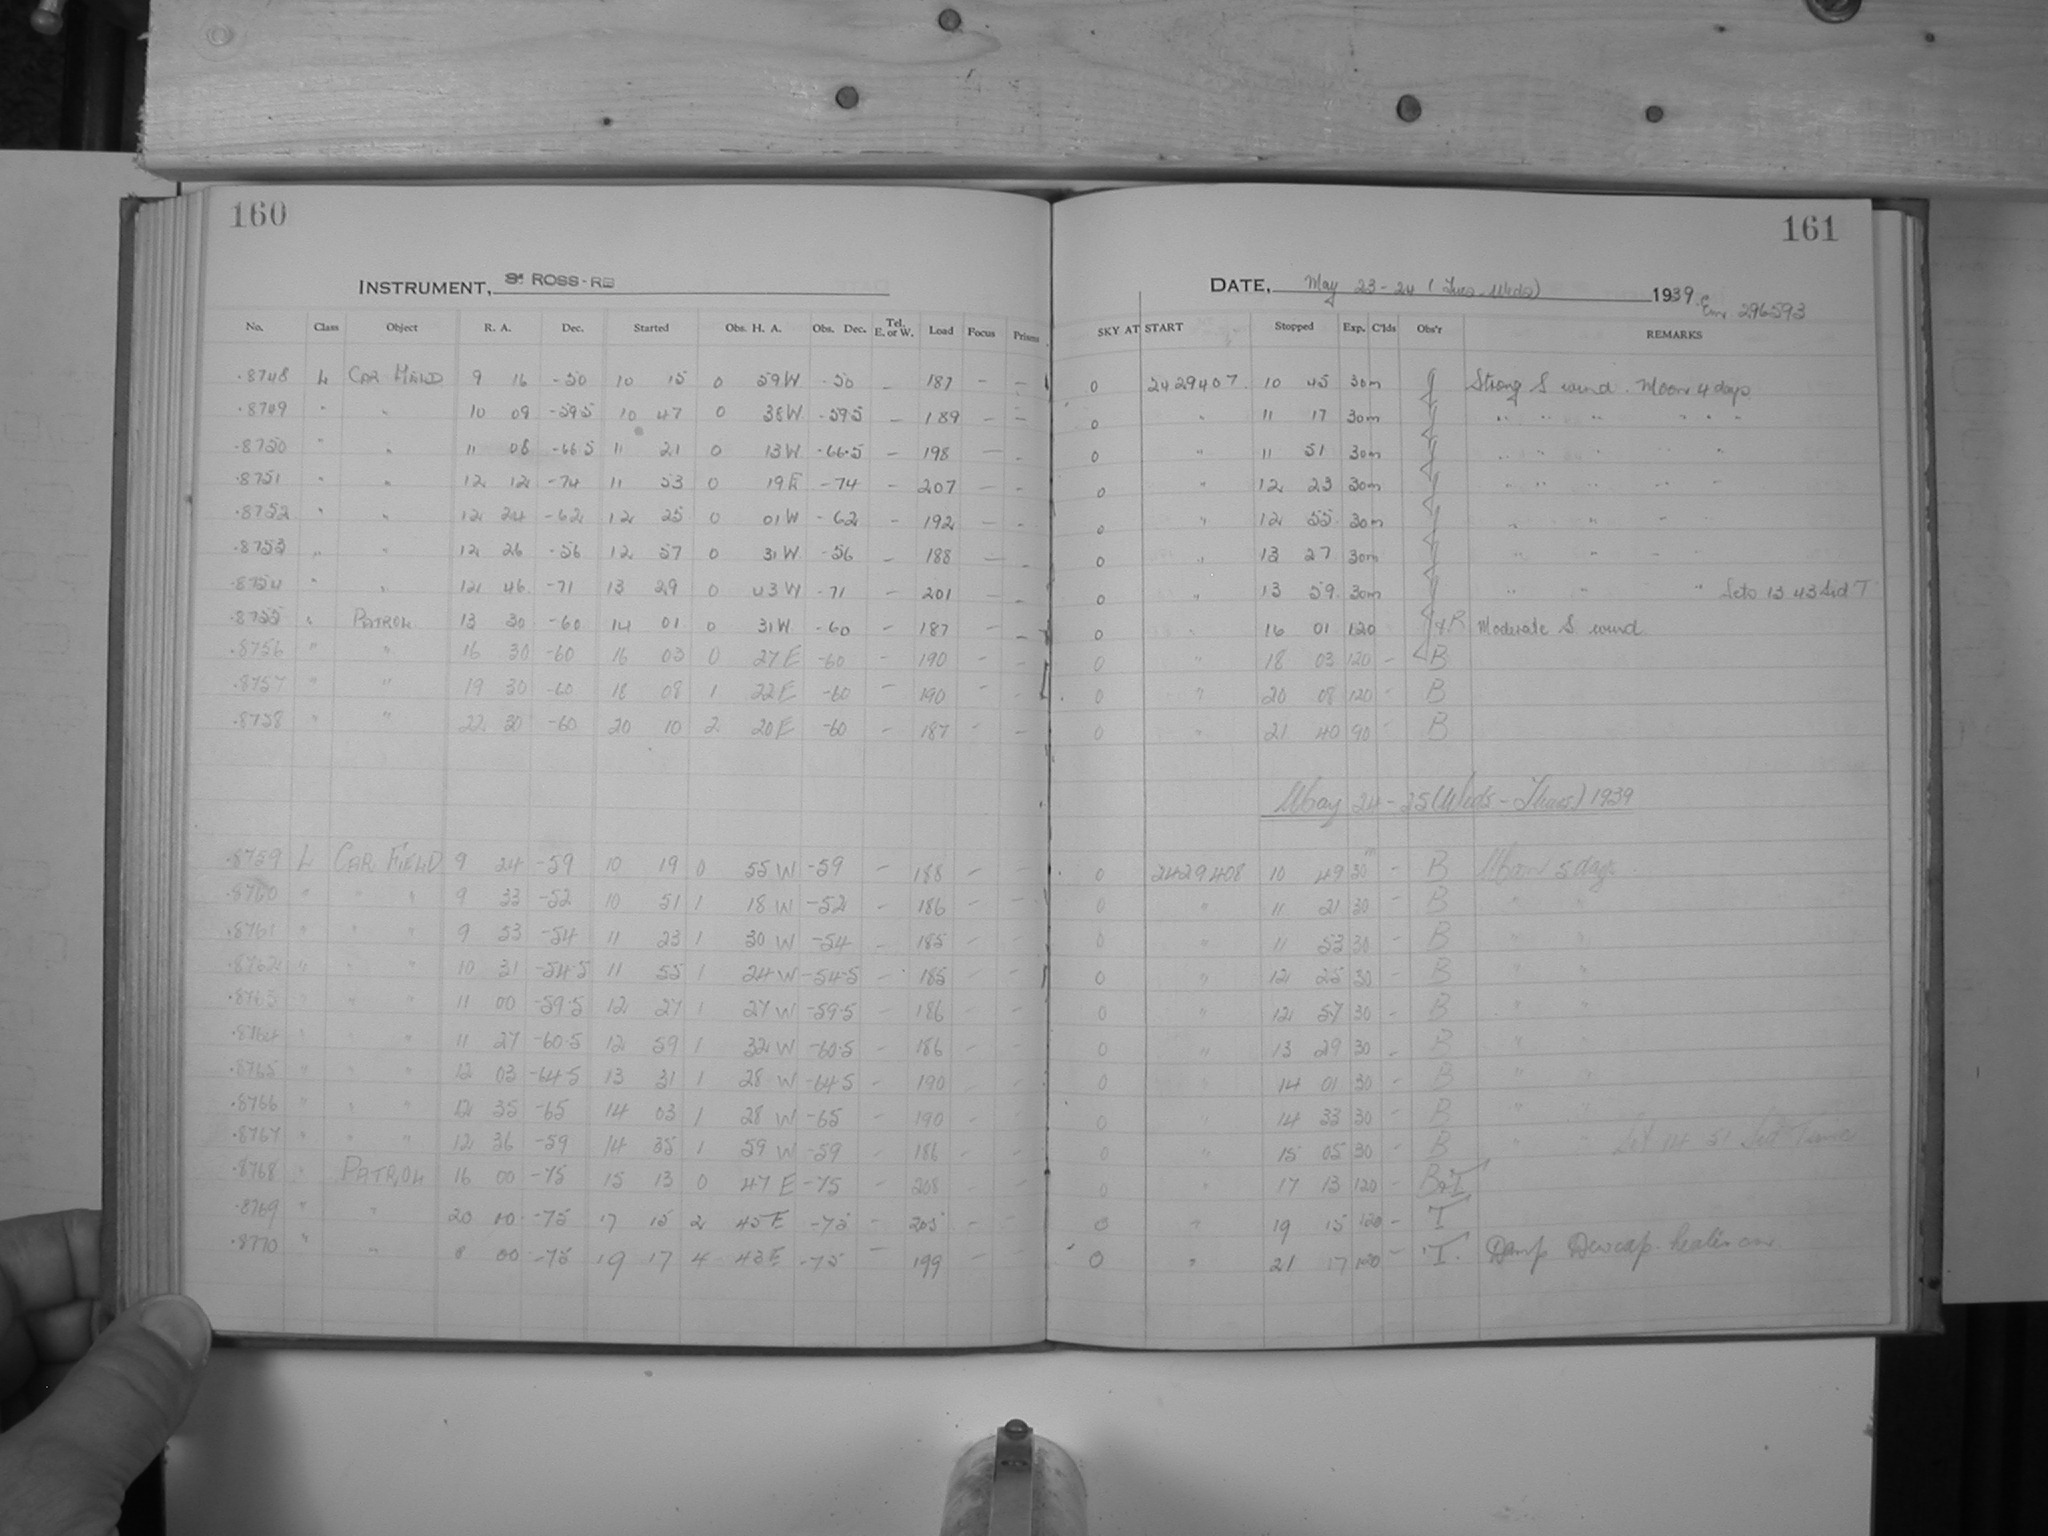 160
161
INSTRUMENT, 3" ROSS-RB
DATE, May 23-24 (Tues-Weds) 1939.
Em. 296593
No. Class Object R. A. Dec. Started Obs. H. A. Obs. Dec. Tel. E. or W. Load Focus Prisms SKY AT START Stopped Exp. C'lds Obs'r REMARKS
.8748 L CAR FIELD 9 16 -50 10 15 0 59W -50 - 187 - - 0 2429407. 10 45 30m J Strong S wind. Moon 4 days
.8749 " " 10 09 -59.5 10 47 0 38W -59.5 - 189 - - 0 " 11 17 30m J " " " " " "
.8750 " " 11 08 -66.5 11 21 0 13W -66.5 - 198 - - 0 " 11 51 30m J " " " " "
.8751 " " 12 12 -74 11 53 0 19E -74 - 207 - - 0 " 12 23 30m J " " " " "
.8752 " " 12 24 -62 12 25 0 01W -62 - 192 - - 0 " 12 55 30m J " " " " "
.8753 " " 12 26 -56 12 57 0 31W -56 - 188 - - 0 " 13 27 30m J " " " "
.8754 " " 12 46 -71 13 29 0 43W -71 - 201 - - 0 " 13 59 30m J " " " Sets 13 43 Sid T
.8755 " PATROL 13 30 -60 14 01 0 31W -60 - 187 - - 0 " 16 01 120 J & B Moderate S wind
.8756 " " 16 30 -60 16 03 0 27E -60 - 190 - - 0 " 18 03 120 - B
.8757 " " 19 30 -60 18 08 1 22E -60 - 190 - - 0 " 20 08 120 - B
.8758 " " 22 30 -60 20 10 2 20E -60 - 187 - - 0 " 21 40 90 - B
May 24-25 (Weds-Thurs) 1939
.8759 L CAR FIELD 9 24 -59 10 19 0 55W -59 - 188 - - 0 2429408 10 49 30m - B Moon 5 days
.8760 " " " 9 33 -52 10 51 1 18W -52 - 186 - - 0 " 11 21 30 - B " "
.8761 " " " 9 53 -54 11 23 1 30W -54 - 185 - - 0 " 11 53 30 - B " "
.8762 " " " 10 31 -54.5 11 55 1 24W -54.5 - 185 - - 0 " 12 25 30 - B " "
.8763 " " " 11 00 -59.5 12 27 1 27W -59.5 - 186 - - 0 " 12 57 30 - B " "
.8764 " " " 11 27 -60.5 12 59 1 32W -60.5 - 186 - - 0 " 13 29 30 - B " "
.8765 " " " 12 03 -64.5 13 31 1 28W -64.5 - 190 - - 0 " 14 01 30 - B " "
.8766 " " " 12 35 -65 14 03 1 28W -65 - 190 - - 0 " 14 33 30 - B " "
.8767 " " " 12 36 -59 14 35 1 59W -59 - 186 - - 0 " 15 05 30 - B " " Set 14 51 Sid Time
.8768 " PATROL 16 00 -75 15 13 0 47E -75 - 208 - - 0 " 17 13 120 - B&T
.8769 " " 20 00 -75 17 15 2 45E -75 - 205 - - 0 " 19 15 120 - T
.8770 " " 0 00 -75 19 17 4 43E -75 - 199 - - 0 " 21 17 120 - T. Damp Dewcap heater on